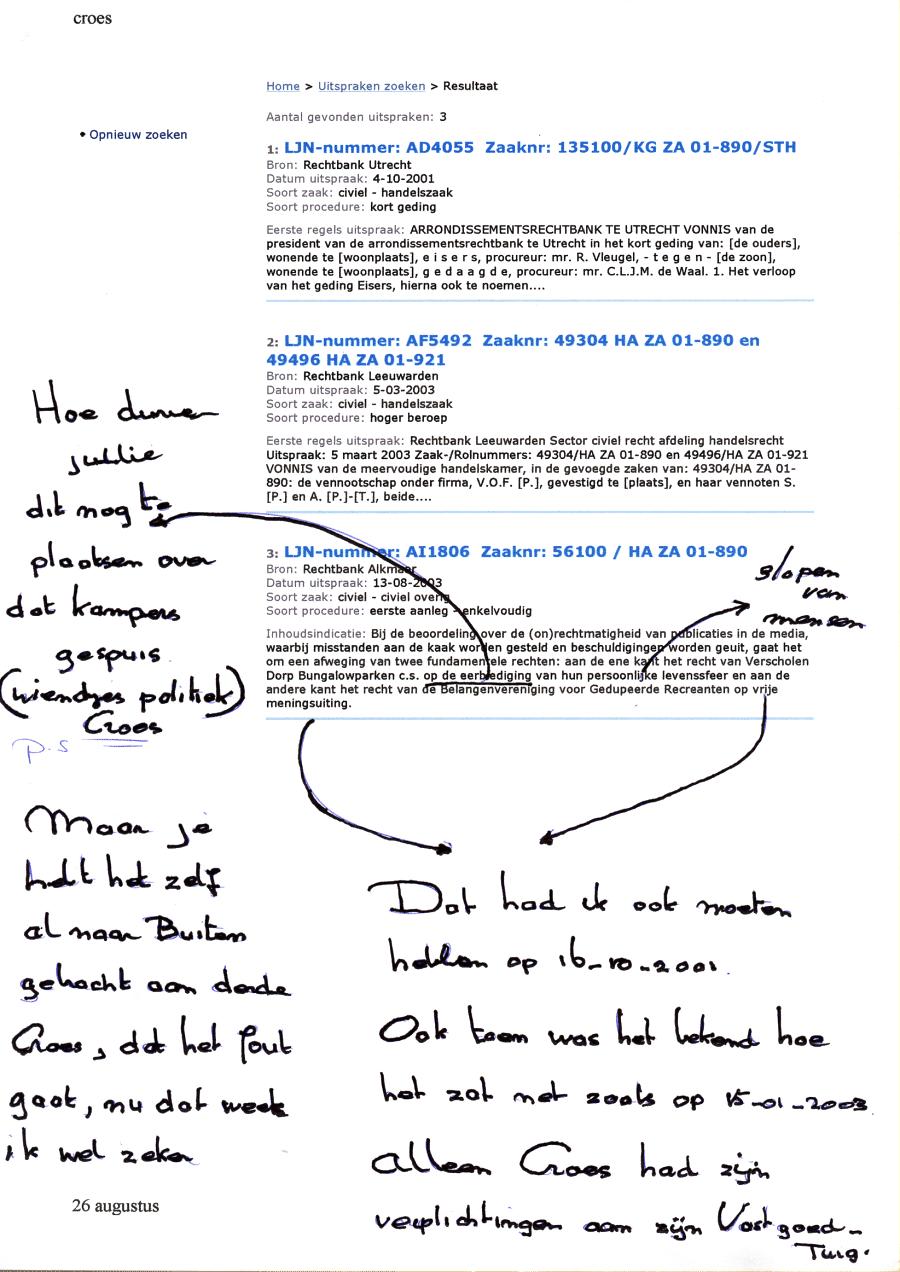 croes
Home > Uitspraken zoeken > Resultaat
Aantal gevonden uitspraken: 3
• Opnieuw zoeken
1: LJN-nummer: AD4055 Zaaknr: 135100/KG ZA 01-890/STH
Bron: Rechtbank Utrecht
Datum uitspraak: 4-10-2001
Soort zaak: civiel - handelszaak
Soort procedure: kort geding
Eerste regels uitspraak: ARRONDISSEMENTSRECHTBANK TE UTRECHT VONNIS van de
president van de arrondissementsrechtbank te Utrecht in het kort geding van: [de ouders],
wonende te [woonplaats], e i s e r s, procureur: mr. R. Vleugel, - t e g e n - [de zoon],
wonende te [woonplaats], g e d a a g d e, procureur: mr. C.L.J.M. de Waal. 1. Het verloop
van het geding Eisers, hierna ook te noemen....
2: LJN-nummer: AF5492 Zaaknr: 49304 HA ZA 01-890 en
49496 HA ZA 01-921
Bron: Rechtbank Leeuwarden
Datum uitspraak: 5-03-2003
Soort zaak: civiel - handelszaak
Soort procedure: hoger beroep
Eerste regels uitspraak: Rechtbank Leeuwarden Sector civiel recht afdeling handelsrecht
Uitspraak: 5 maart 2003 Zaak-/Rolnummers: 49304/HA ZA 01-890 en 49496/HA ZA 01-921
VONNIS van de meervoudige handelskamer, in de gevoegde zaken van: 49304/HA ZA 01-
890: de vennootschap onder firma, V.O.F. [P.], gevestigd te [plaats], en haar vennoten S.
[P.] en A. [P.]-[T.], beide....
3: LJN-nummer: AI1806 Zaaknr: 56100 / HA ZA 01-890
Bron: Rechtbank Alkmaar
Datum uitspraak: 13-08-2003
Soort zaak: civiel - civiel overig
Soort procedure: eerste aanleg - enkelvoudig
Inhoudsindicatie: Bij de beoordeling over de (on)rechtmatigheid van publicaties in de media,
waarbij misstanden aan de kaak worden gesteld en beschuldigingen worden geuit, gaat het
om een afweging van twee fundamentele rechten: aan de ene kant het recht van Verscholen
Dorp Bungalowparken c.s. op de eerbiediging van hun persoonlijke levenssfeer en aan de
andere kant het recht van de Belangenvereniging voor Gedupeerde Recreanten op vrije
meningsuiting.
Hoe durven
jullie
dit nog te
plaatsen over
dat kampers
gespuis
(vriendjes politiek)
Croes
P.S
Maar je
hebt het zelf
al naar Buiten
gebracht aan derde
Croes, dat het fout
gaat, nu dat weet
ik wel zeker
slopen
van
mensen
Dat had ik ook moeten
hebben op 16-10-2001.
Ook toen was het bekend hoe
het zat net zoals op 15-01-2003
alleen Croes had zijn
verplichtingen aan zijn Vastgoed-
Tuig.
26 augustus